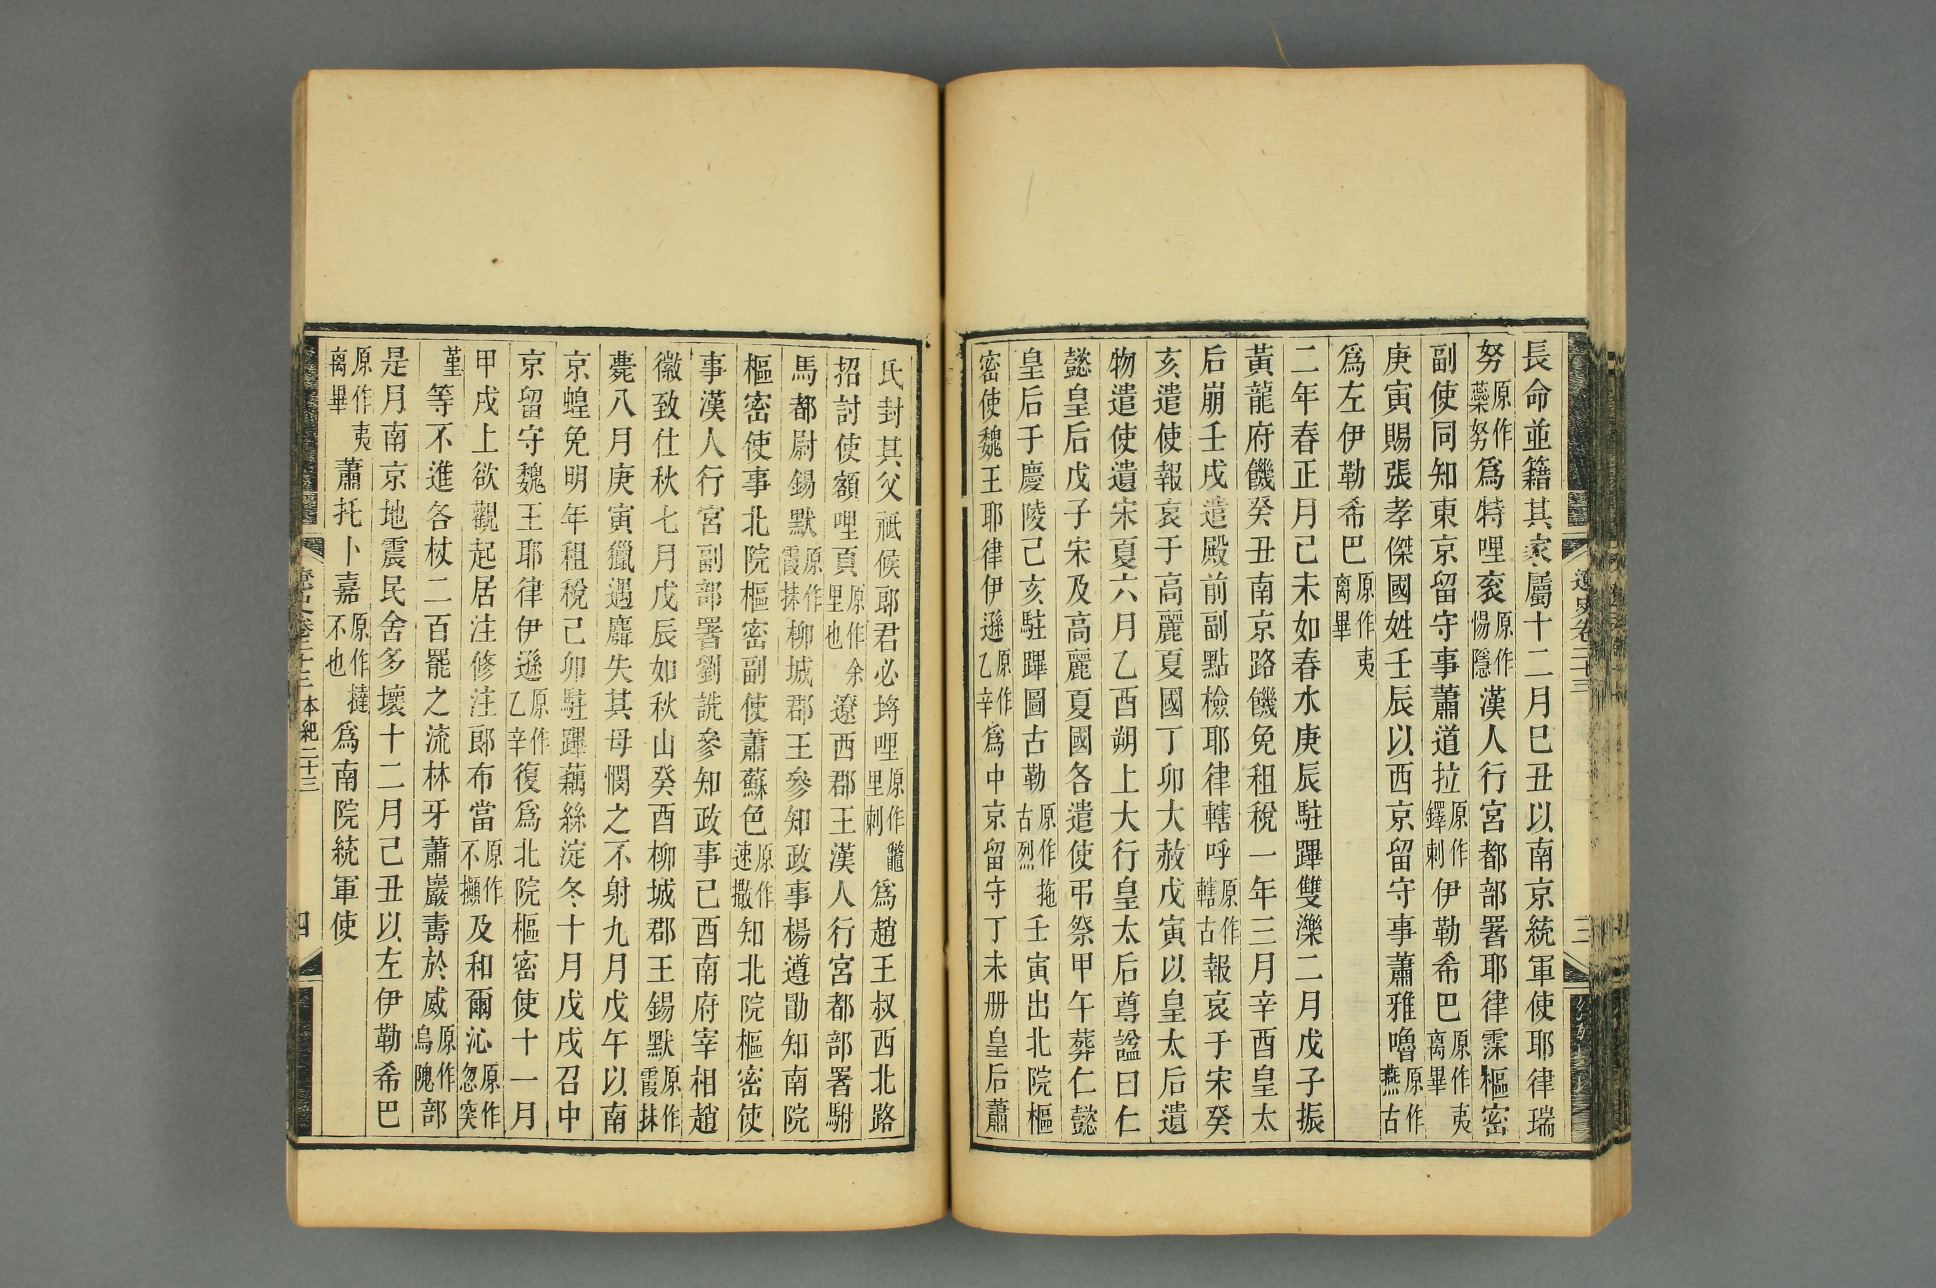 長命並籍其家屬十二月巳丑以南京統軍使耶律瑞
努原作藥努爲特哩袞原作惕隱漢人行宮都部署耶律霂樞密
副使同知東京留守事蕭道拉原作鐸剌伊勒希巴原作夷离畢
庚寅賜張孝傑國姓壬辰以西京留守事蕭雅嚕原作燕古
爲左伊勒希巴原作夷离畢
二年春正月己未如春水庚辰駐蹕雙濼二月戊子振
黃龍府饑癸丑南京路饑免租稅一年三月辛酉皇太
后崩壬戌遣殿前副點檢耶律轄呼原作轄古報哀于宋癸
亥遣使報哀于高麗夏國丁卯大赦戊寅以皇太后遺
物遣使遺宋夏六月乙酉朔上大行皇太后尊諡曰仁
懿皇后戊子宋及高麗夏國各遣使弔祭甲午葬仁懿
皇后于慶陵己亥駐蹕圖古勒原作拖古烈壬寅出北院樞
密使魏王耶律伊遜原作乙辛爲中京留守丁未册皇后蕭
遼史卷二十三
三
氏封其父祗候郎君必塔哩原作鼈里剌爲趙王叔西北路
招討使額哩頁原作余里也遼西郡王漢人行宮都部署駙
馬都尉錫默原作霞抹柳城郡王參知政事楊遵勖知南院
樞密使事北院樞密副使蕭蘇色原作速撒知北院樞密使
事漢人行宮副部署劉詵參知政事己酉南府宰相趙
徽致仕秋七月戊辰如秋山癸酉柳城郡王錫默原作霞抹
薨八月庚寅獵遇麛失其母憫之不射九月戊午以南
京蝗免明年租稅己卯駐蹕藕絲淀冬十月戊戌召中
京留守魏王耶律伊遜原作乙辛復爲北院樞密使十一月
甲戌上欲觀起居注修注郎布當原作不攧及和爾沁原作忽突
堇等不進各杖二百罷之流林牙蕭巖壽於威烏原作隗部
是月南京地震民舍多壞十二月己丑以左伊勒希巴
原作夷离畢蕭托卜嘉原作撻不也爲南院統軍使
遼史卷二十三 本紀二十三
四